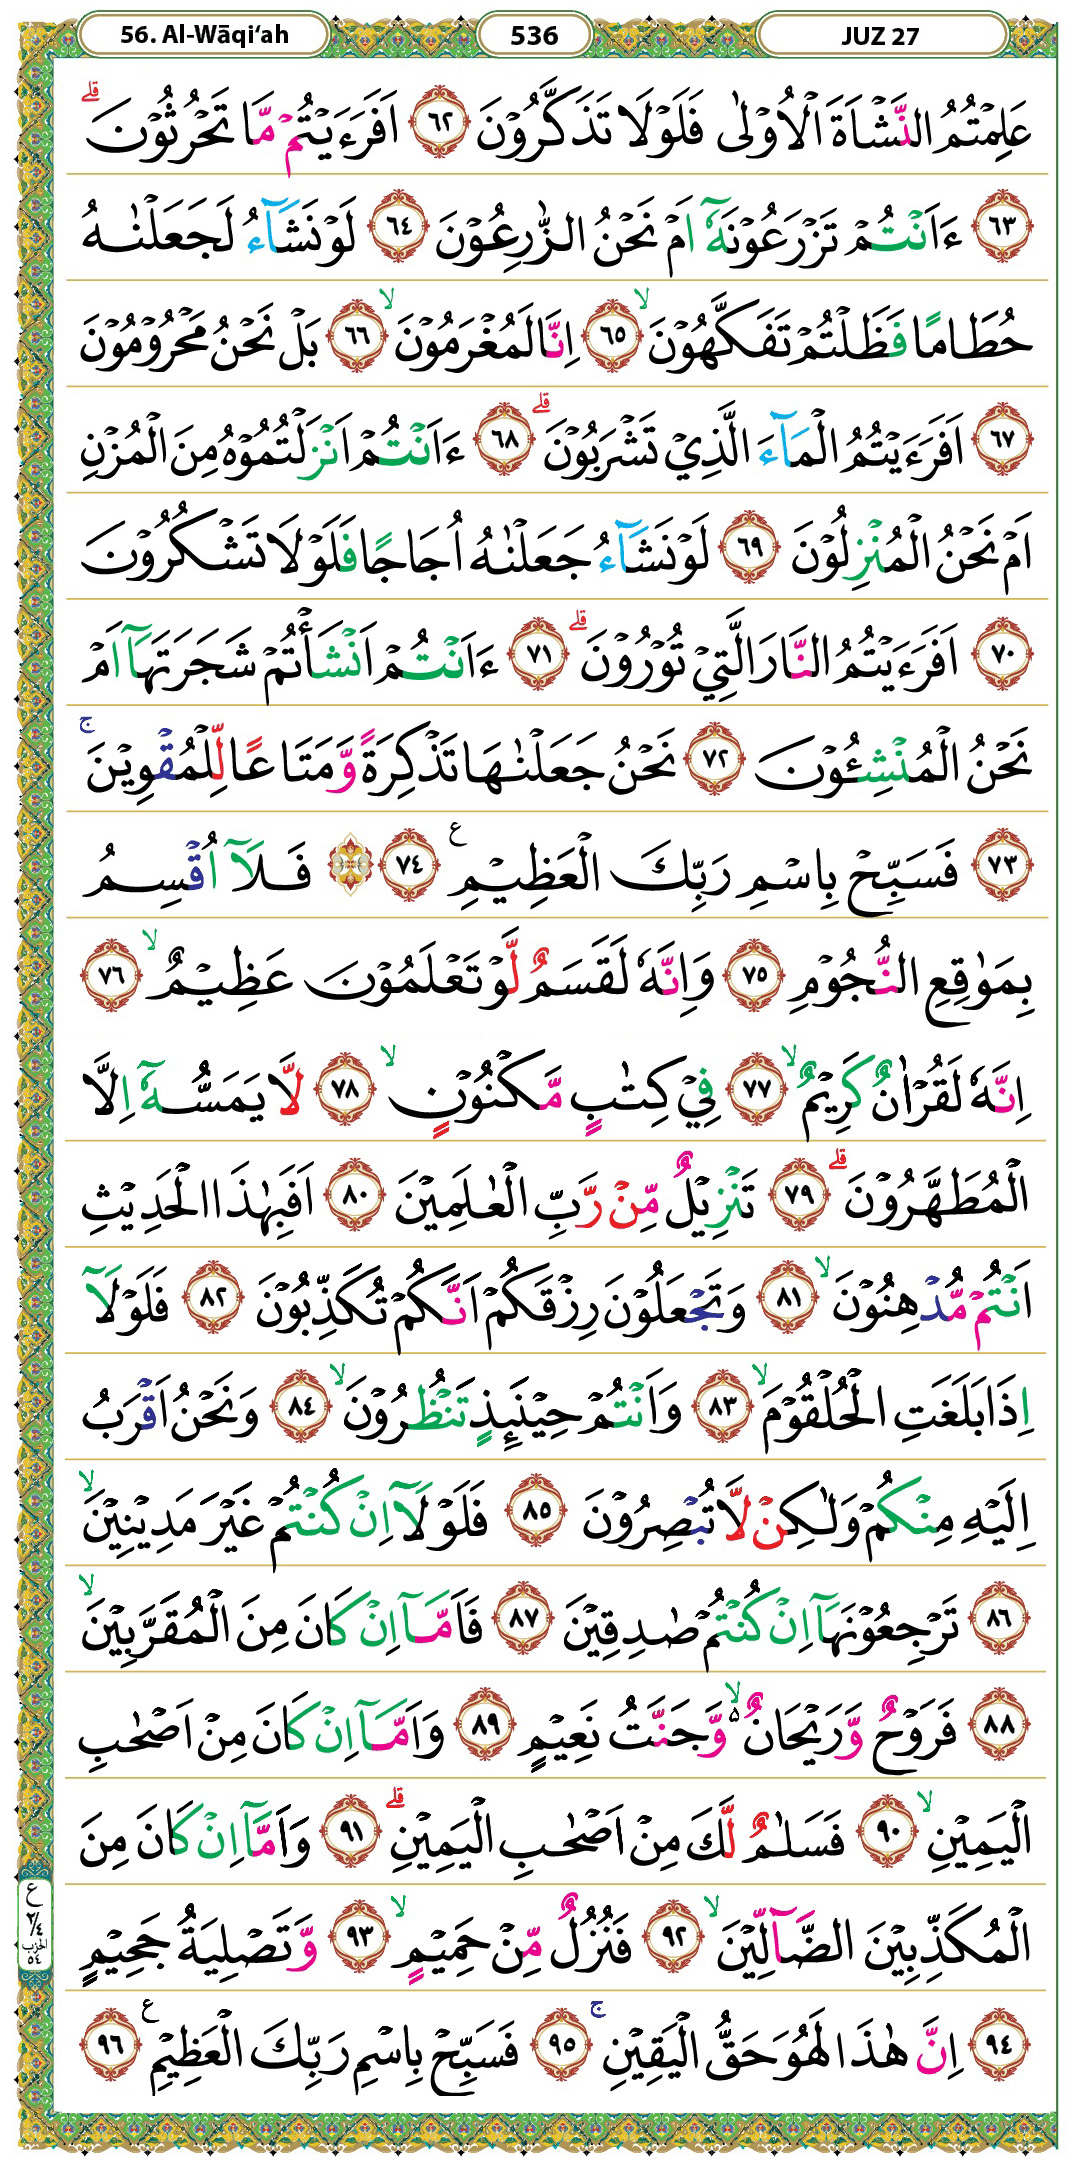 56. Al-Wāqi‘ah
536
JUZ 27
عَلِمْتُمُ النَّشْاَةَ الْاُوْلٰى فَلَوْلَا تَذَكَّرُوْنَ ٦٢ اَفَرَءَيْتُمْ مَّا تَحْرُثُوْنَ ۗ
٦٣ ءَاَنْتُمْ تَزْرَعُوْنَهٗٓ اَمْ نَحْنُ الزّٰرِعُوْنَ ٦٤ لَوْ نَشَاۤءُ لَجَعَلْنٰهُ
حُطَامًا فَظَلْتُمْ تَفَكَّهُوْنَۙ ٦٥ اِنَّا لَمُغْرَمُوْنَۙ ٦٦ بَلْ نَحْنُ مَحْرُوْمُوْنَ
٦٧ اَفَرَءَيْتُمُ الْمَاۤءَ الَّذِيْ تَشْرَبُوْنَۗ ٦٨ ءَاَنْتُمْ اَنْزَلْتُمُوْهُ مِنَ الْمُزْنِ
اَمْ نَحْنُ الْمُنْزِلُوْنَ ٦٩ لَوْ نَشَاۤءُ جَعَلْنٰهُ اُجَاجًا فَلَوْلَا تَشْكُرُوْنَ
٧٠ اَفَرَءَيْتُمُ النَّارَ الَّتِيْ تُوْرُوْنَۗ ٧١ ءَاَنْتُمْ اَنْشَأْتُمْ شَجَرَتَهَآ اَمْ
نَحْنُ الْمُنْشِـُٔوْنَ ٧٢ نَحْنُ جَعَلْنٰهَا تَذْكِرَةً وَّمَتَاعًا لِّلْمُقْوِيْنَۚ
٧٣ فَسَبِّحْ بِاسْمِ رَبِّكَ الْعَظِيْمِ ࣖ ٧٤ ۞ فَلَآ اُقْسِمُ
بِمَوٰقِعِ النُّجُوْمِ ٧٥ وَاِنَّهٗ لَقَسَمٌ لَّوْ تَعْلَمُوْنَ عَظِيْمٌۙ ٧٦
اِنَّهٗ لَقُرْاٰنٌ كَرِيْمٌۙ ٧٧ فِيْ كِتٰبٍ مَّكْنُوْنٍۙ ٧٨ لَّا يَمَسُّهٗٓ اِلَّا
الْمُطَهَّرُوْنَۗ ٧٩ تَنْزِيْلٌ مِّنْ رَّبِّ الْعٰلَمِيْنَ ٨٠ اَفَبِهٰذَا الْحَدِيْثِ
اَنْتُمْ مُّدْهِنُوْنَۙ ٨١ وَتَجْعَلُوْنَ رِزْقَكُمْ اَنَّكُمْ تُكَذِّبُوْنَ ٨٢ فَلَوْلَآ
اِذَا بَلَغَتِ الْحُلْقُوْمَۙ ٨٣ وَاَنْتُمْ حِيْنَىِٕذٍ تَنْظُرُوْنَۙ ٨٤ وَنَحْنُ اَقْرَبُ
اِلَيْهِ مِنْكُمْ وَلٰكِنْ لَّا تُبْصِرُوْنَ ٨٥ فَلَوْلَآ اِنْ كُنْتُمْ غَيْرَ مَدِيْنِيْنَۙ
٨٦ تَرْجِعُوْنَهَآ اِنْ كُنْتُمْ صٰدِقِيْنَ ٨٧ فَاَمَّآ اِنْ كَانَ مِنَ الْمُقَرَّبِيْنَۙ
٨٨ فَرَوْحٌ وَّرَيْحَانٌ ەۙ وَّجَنَّتُ نَعِيْمٍ ٨٩ وَاَمَّآ اِنْ كَانَ مِنْ اَصْحٰبِ
الْيَمِيْنِۙ ٩٠ فَسَلٰمٌ لَّكَ مِنْ اَصْحٰبِ الْيَمِيْنِۗ ٩١ وَاَمَّآ اِنْ كَانَ مِنَ
الْمُكَذِّبِيْنَ الضَّاۤلِّيْنَۙ ٩٢ فَنُزُلٌ مِّنْ حَمِيْمٍۙ ٩٣ وَّتَصْلِيَةُ جَحِيْمٍ
٩٤ اِنَّ هٰذَا لَهُوَ حَقُّ الْيَقِيْنِۚ ٩٥ فَسَبِّحْ بِاسْمِ رَبِّكَ الْعَظِيْمِ ࣖ ٩٦
ع
٢/٤
الحزب
٥٤